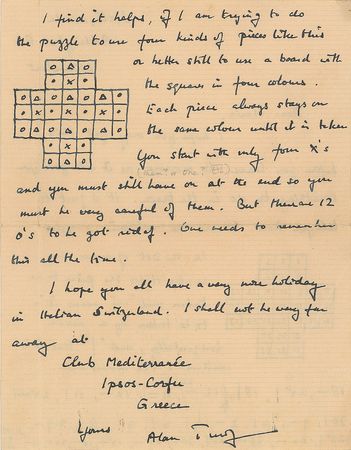 I find it helps, if I am trying to do
the puzzle to use four kinds of pieces like this
or better still to use a board with
the squares in four colours.
Each piece always stays on
the same colour until it is taken
You start with only four x's
and you must still have on at the end so you
must be very careful of them. But there are 12
o's to be got rid of. One needs to remember
this all the time.
I hope you all have a very nice holiday
in Italian Switzerland. I shall not be very far
away at
Club Mediterranée
Ipsos-Corfu
Greece
Yours Alan Turing